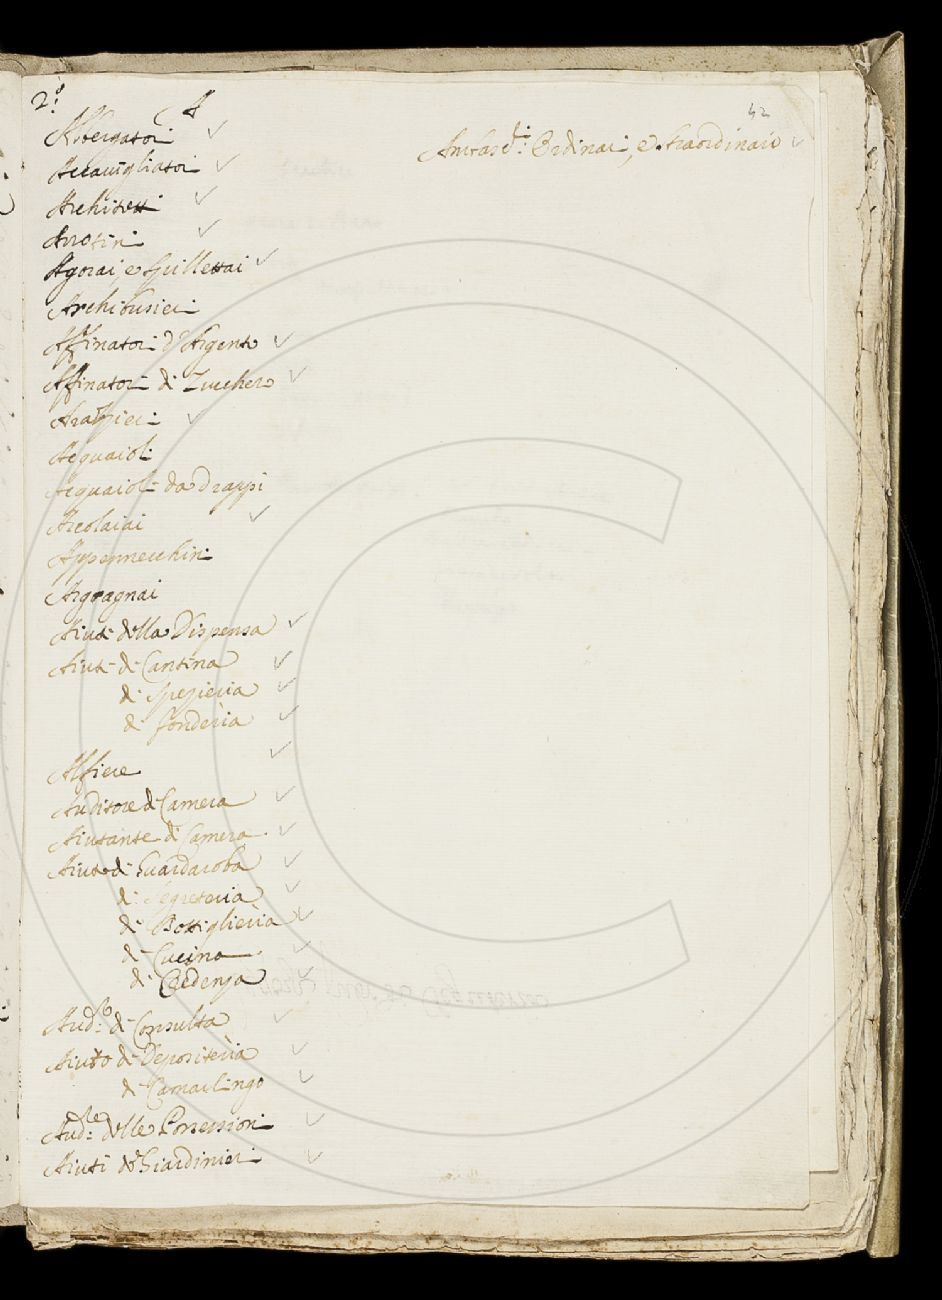 2.° A
42
Albergatori
Ambasd:ri Ordinari, e straordinario
Accavigliatori
Architetti
Arrotini
Agorai, e Spillettai
Archibusieri
Affinatori d'Argento
Affinatori di Zucchero
Arazzieri
Acquaioli
Acquaioli da Drappi
Arcolaiai
Appennecchini
Argagnai
Aiuti della Dispensa
Aiuti di Cantina
di Spezieria
di fonderia
Alfiere
Auditore di Camera
Aiutante di Camera
Aiuto di Guardaroba
di Segreteria
di Bottiglieria
di Cucina
di Credenza
Aud:re di Consulta
Aiuto di Depositeria
di Camarlingo
Aud:re delle Possessioni
Aiuti de Giardinieri